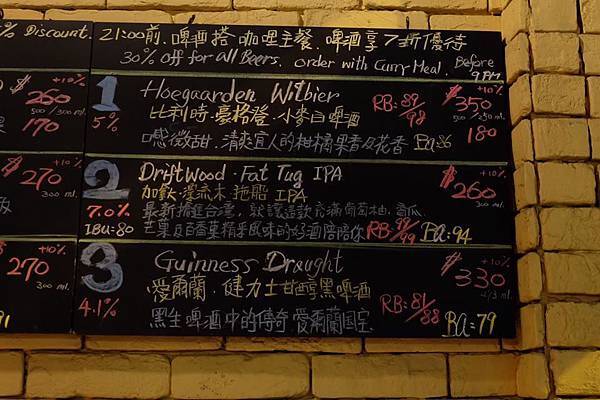 % Discount.
21:00前.啤酒搭咖哩主餐.啤酒享7折優待
30% off for all Beers. order with Curry Meal. Before 9PM
$ +10%
260
500/300 ml
170
1
5%
Hoegaarden Witbier
比利時.豪格登.小麥白啤酒
口感微甜.清爽宜人的柑橘果香及花香
RB:89/98
Ba:86
$ +10%
350
500/250 ml
180
$ +10%
270
300 ml
2
7.0%
IBU=80
DriftWood.Fat Tug IPA
加拿大.漂流木 拖船 IPA
最新搶進台灣,就讓這款充滿葡萄柚.香瓜.
芒果及百香果精采風味的好酒陪陪你
RB:99/99
Ba=94
$ +10%
260
300 ml.
$ +10%
270
300 ml.
91
3
4.1%
Guinness Draught
愛爾蘭.健力士甘醇黑啤酒
黑生啤酒中的傳奇.愛爾蘭國宝
RB:81/88
Ba=79
$ +10%
330